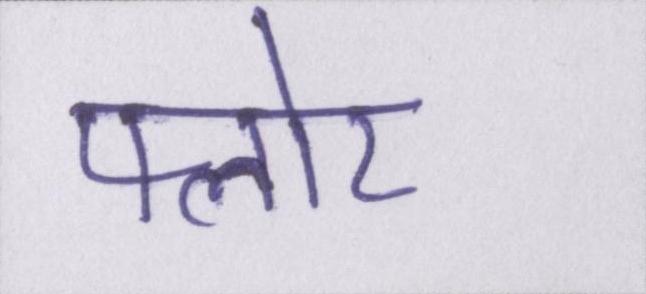 फ्लोर